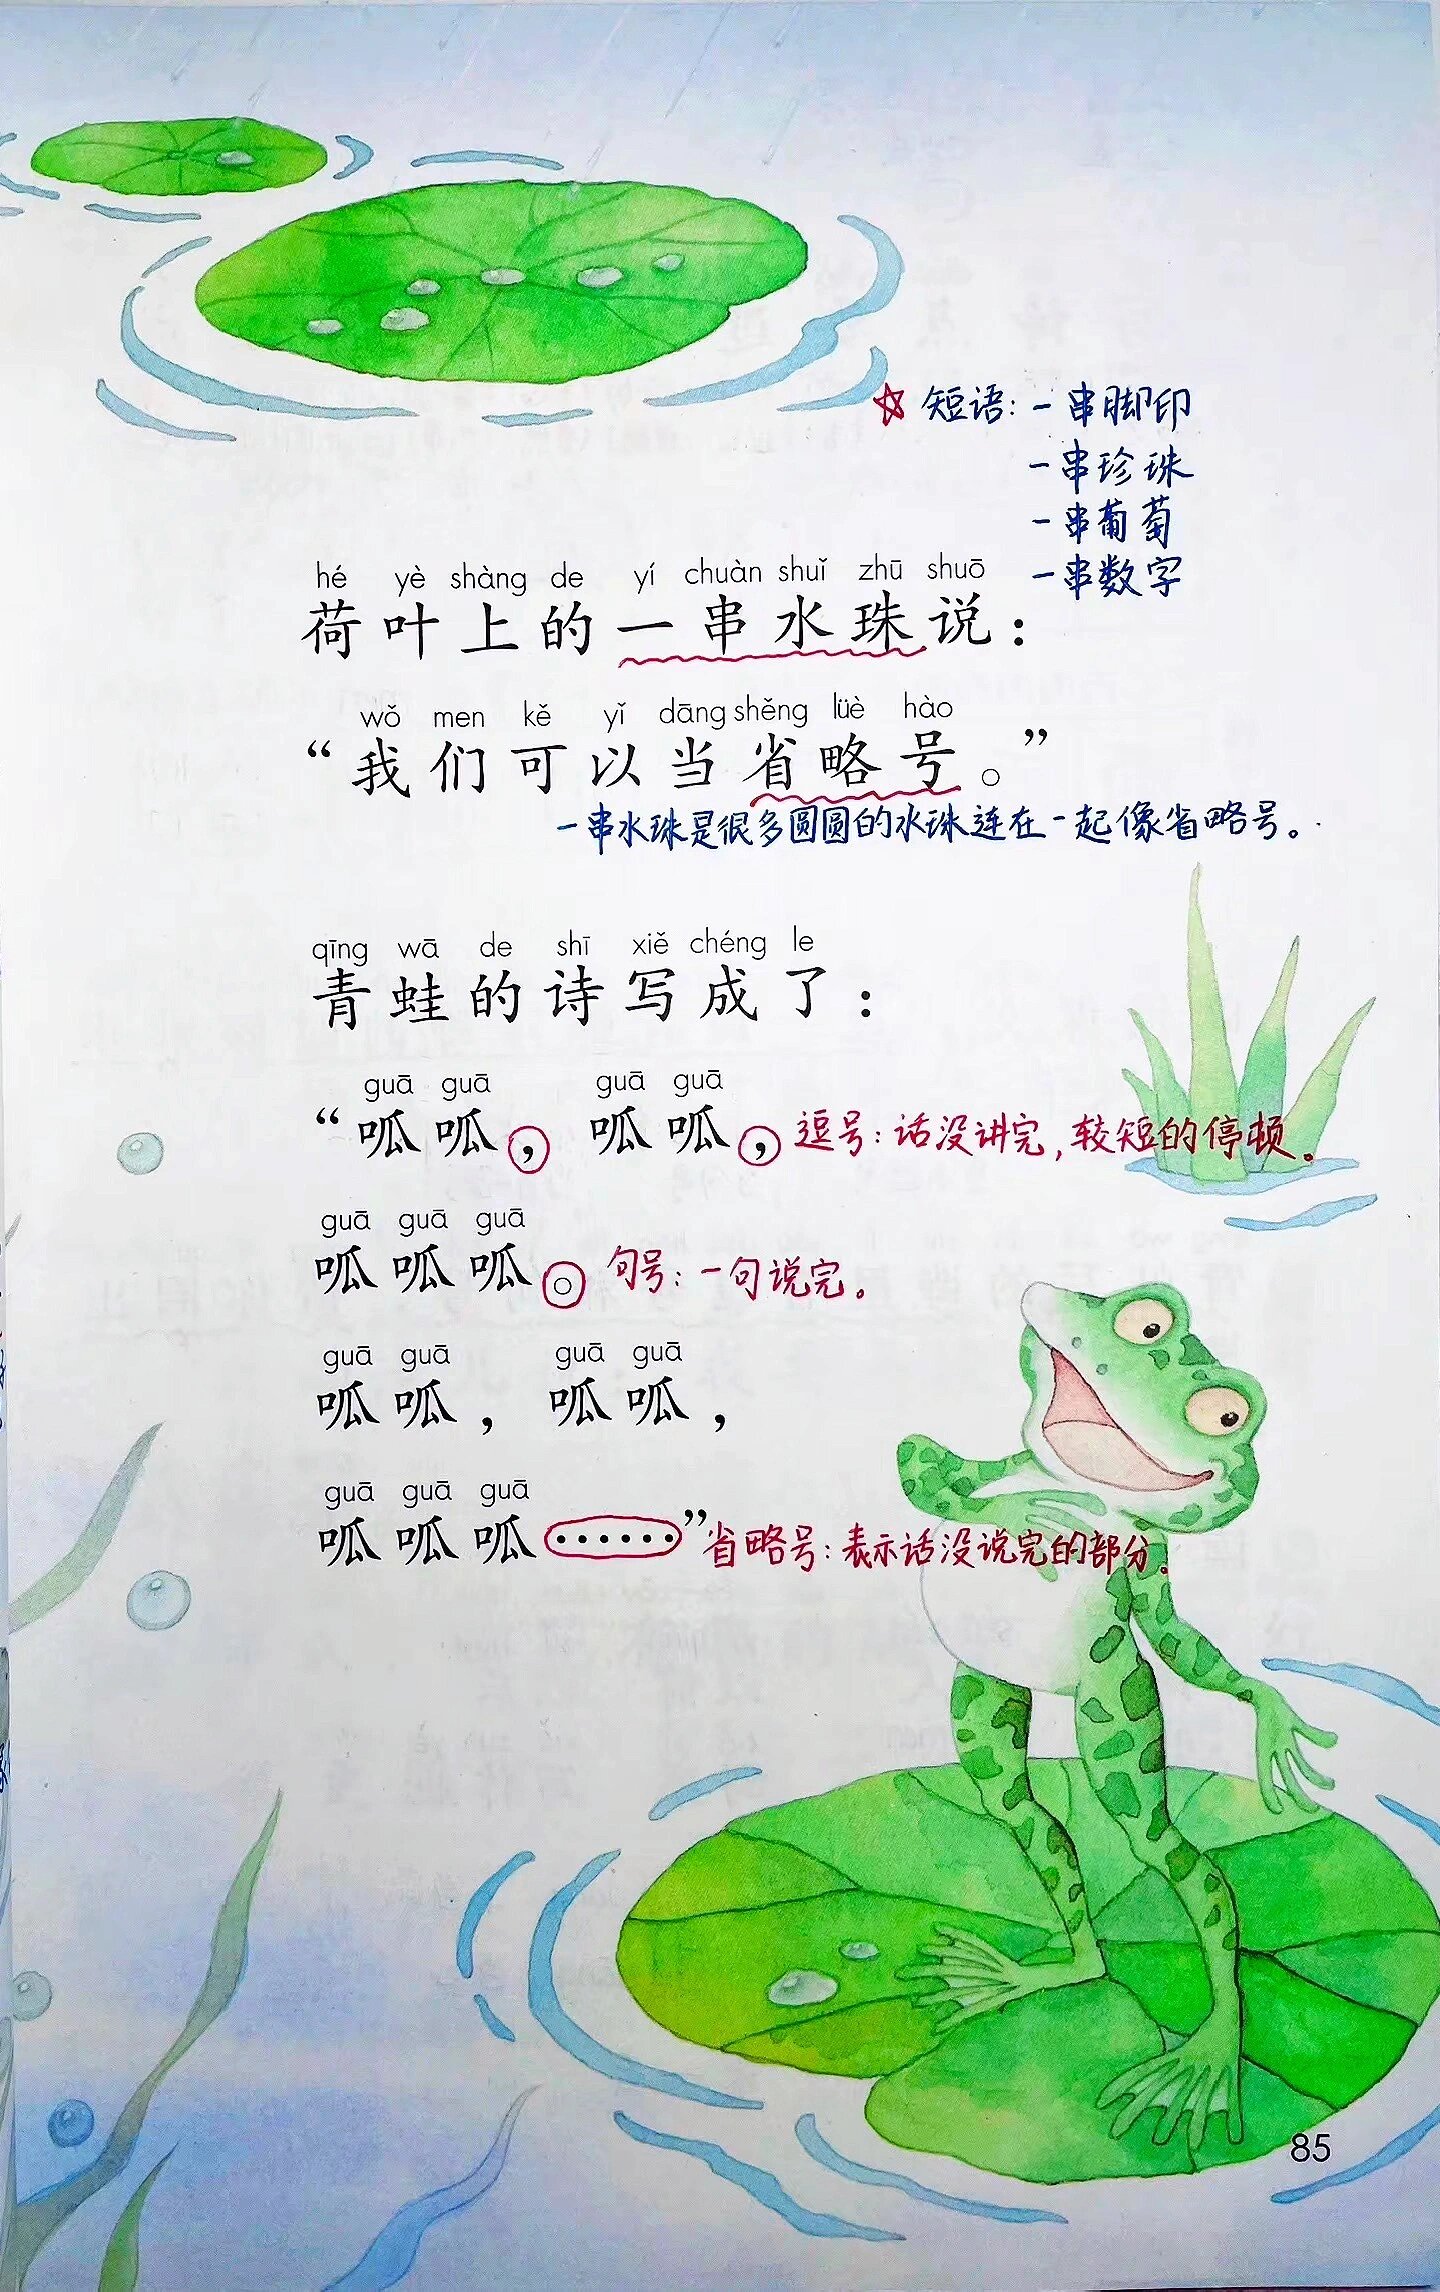 ☆ 短语：一串脚印
一串珍珠
一串葡萄
一串数字
hé yè shàng de yí chuàn shuǐ zhū shuō
荷叶上的一串水珠说：
wǒ men kě yǐ dāng shěng lüè hào
“我们可以当省略号。”
一串水珠是很多圆圆的水珠连在一起像省略号。
qīng wā de shī xiě chéng le
青蛙的诗写成了：
guā guā guā guā
“呱呱，呱呱， 逗号：话没讲完，较短的停顿。
guā guā guā
呱呱呱。 句号：一句说完。
guā guā guā guā
呱呱，呱呱，
guā guā guā
呱呱呱……” 省略号：表示话没说完的部分。
85